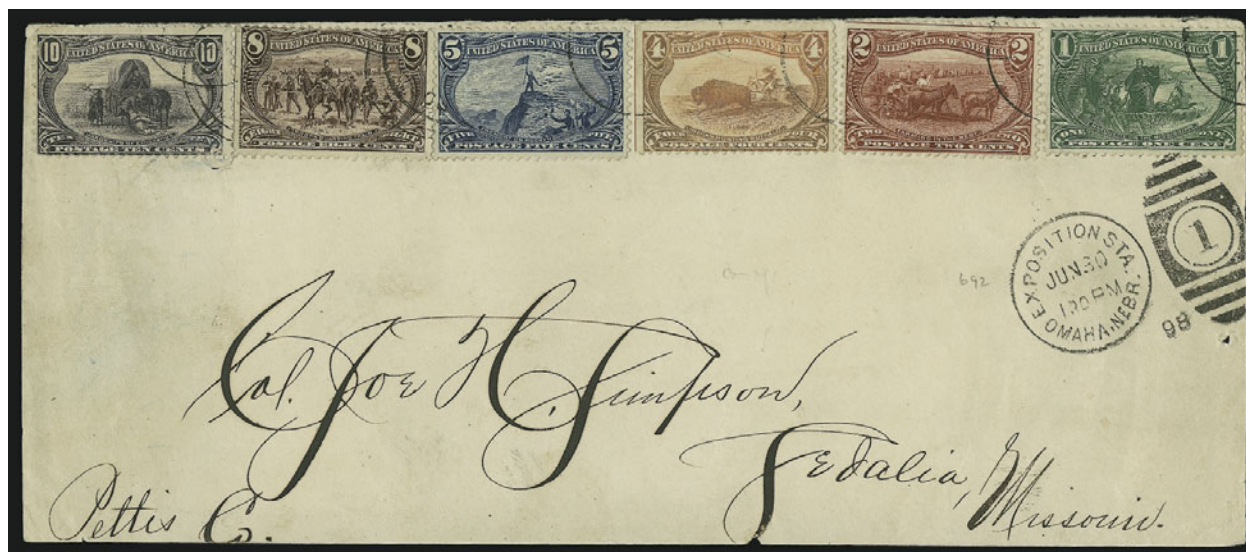 10 UNITED STATES OF AMERICA 10
TEN TEN
POSTAGE TEN CENTS
8 UNITED STATES OF AMERICA 8
EIGHT EIGHT
POSTAGE EIGHT CENTS
5 UNITED STATES OF AMERICA 5
FIVE FIVE
POSTAGE FIVE CENTS
4 UNITED STATES OF AMERICA 4
FOUR FOUR
POSTAGE FOUR CENTS
2 UNITED STATES OF AMERICA 2
TWO TWO
POSTAGE TWO CENTS
1 UNITED STATES OF AMERICA 1
ONE ONE
POSTAGE ONE CENT
1
EXPOSITION STA.
JUN 30
130 PM
OMAHA, NEBR.
98
692
Col. Joe H. Simpson,
Sedalia, Missouri.
Pettis C.